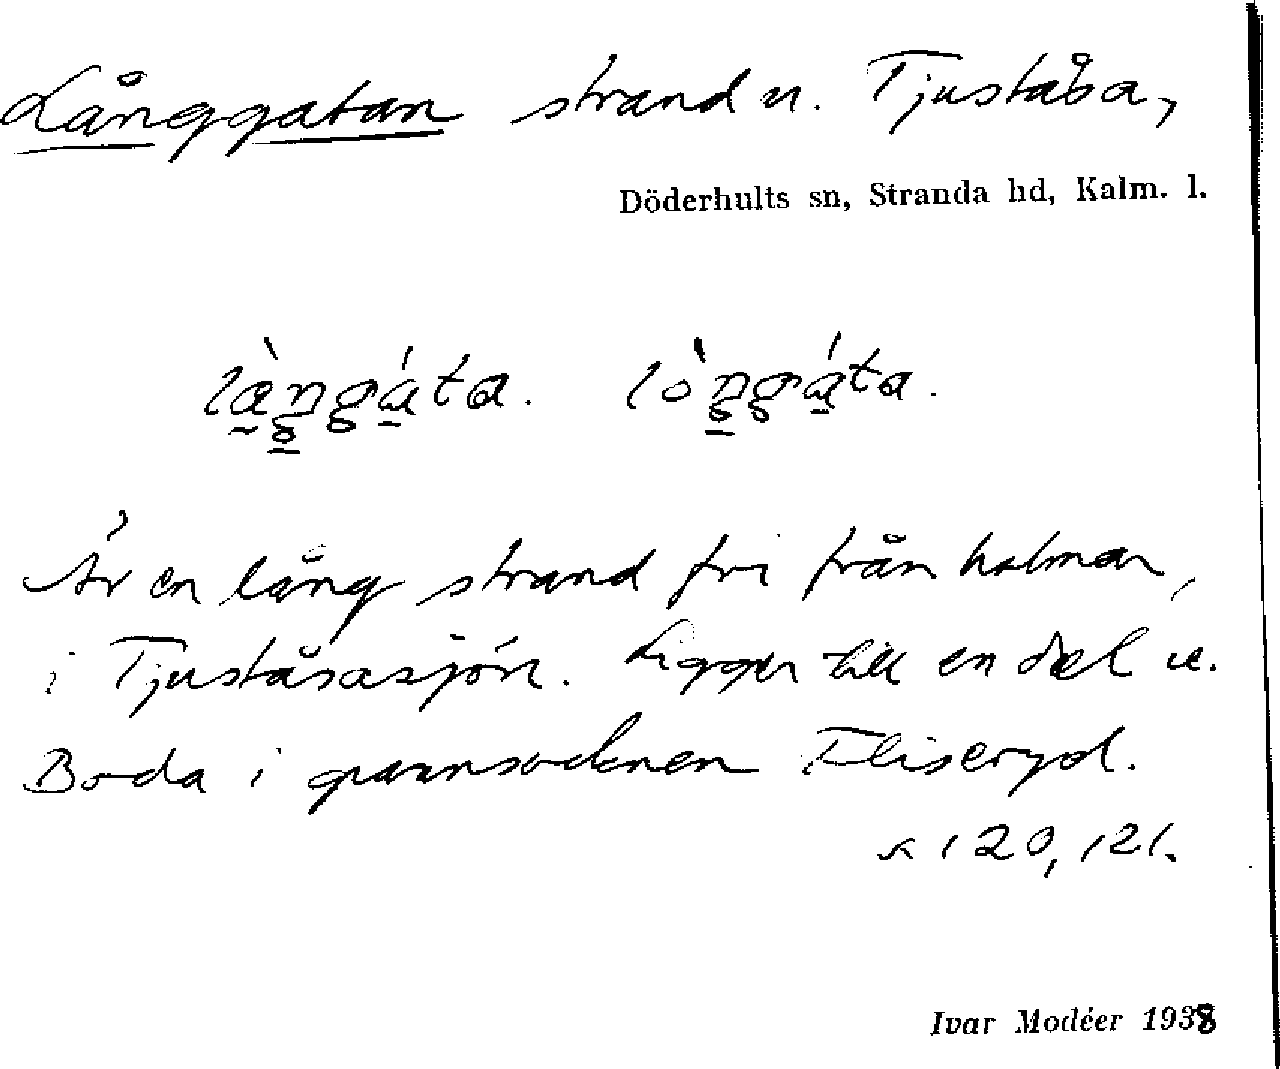 Långgatan strand u. Tjuståsa,
Döderhults sn, Stranda hd, Kalm. l.
Är en lång strand fri från holmar,
i Tjuståsasjön. Ligger till en del u.
Boda i grannsocknen Fliseryd.
s 120, 121.
Ivar Modéer 1938